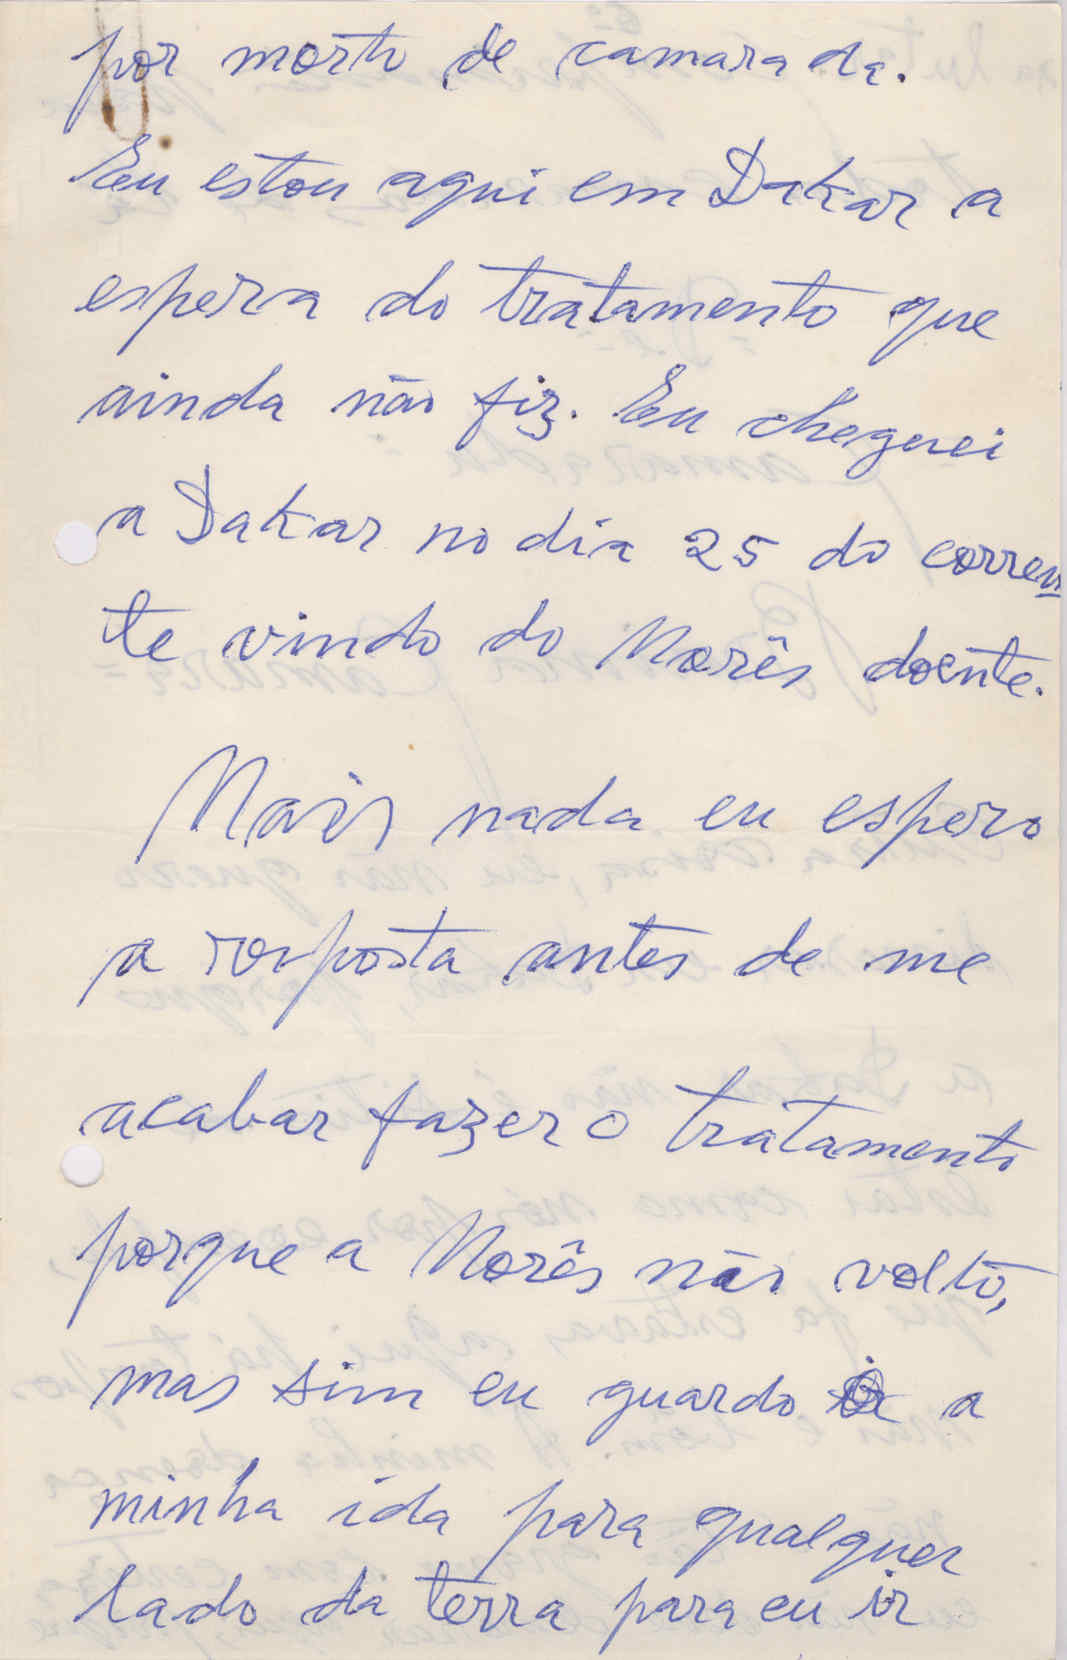 por morto de camarada.
Eu estou aqui em Dakar a
espera do tratamento que
ainda não fiz. Eu cheguei
a Dakar no dia 25 do corren
te vindo do Morês doente.
Mais nada eu espero
a resposta antes de me
acabar fazer o tratamento
porque a Morês não volto,
mas sim eu guardo a
minha ida para qualquer
lado da terra para eu ir